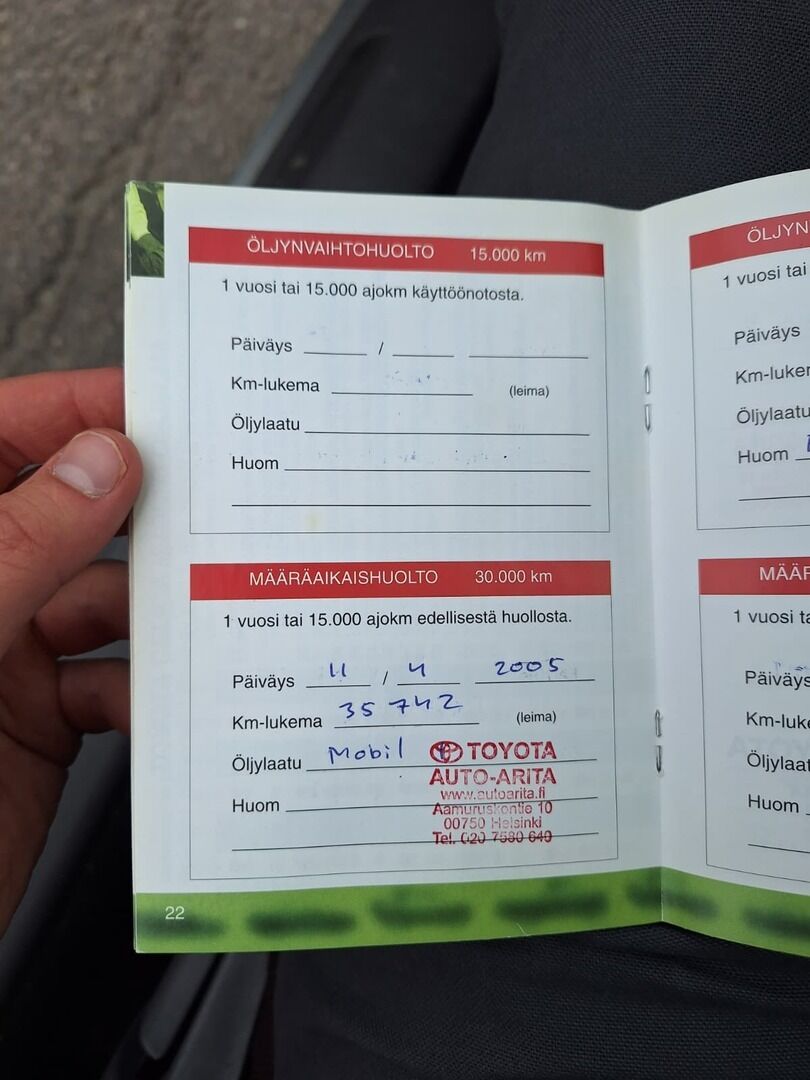 ÖLJYNVAIHTOHUOLTO 15.000 km
1 vuosi tai 15.000 ajokm käyttöönotosta.
Päiväys /
Km-lukema (leima)
Öljylaatu
Huom
MÄÄRÄAIKAISHUOLTO 30.000 km
1 vuosi tai 15.000 ajokm edellisestä huollosta.
Päiväys 11 / 4 2005
Km-lukema 35 742 (leima)
Öljylaatu Mobil
TOYOTA
AUTO-ARITA
www.autoarita.fi
Aamuruskontie 10
00750 Helsinki
Tel. 020 7580 640
Huom
22
ÖLJYN
1 vuosi tai
Päiväys
Km-luke
Öljylaatu
Huom
MÄÄR
1 vuosi ta
Päiväys
Km-luke
Öljylaat
Huom